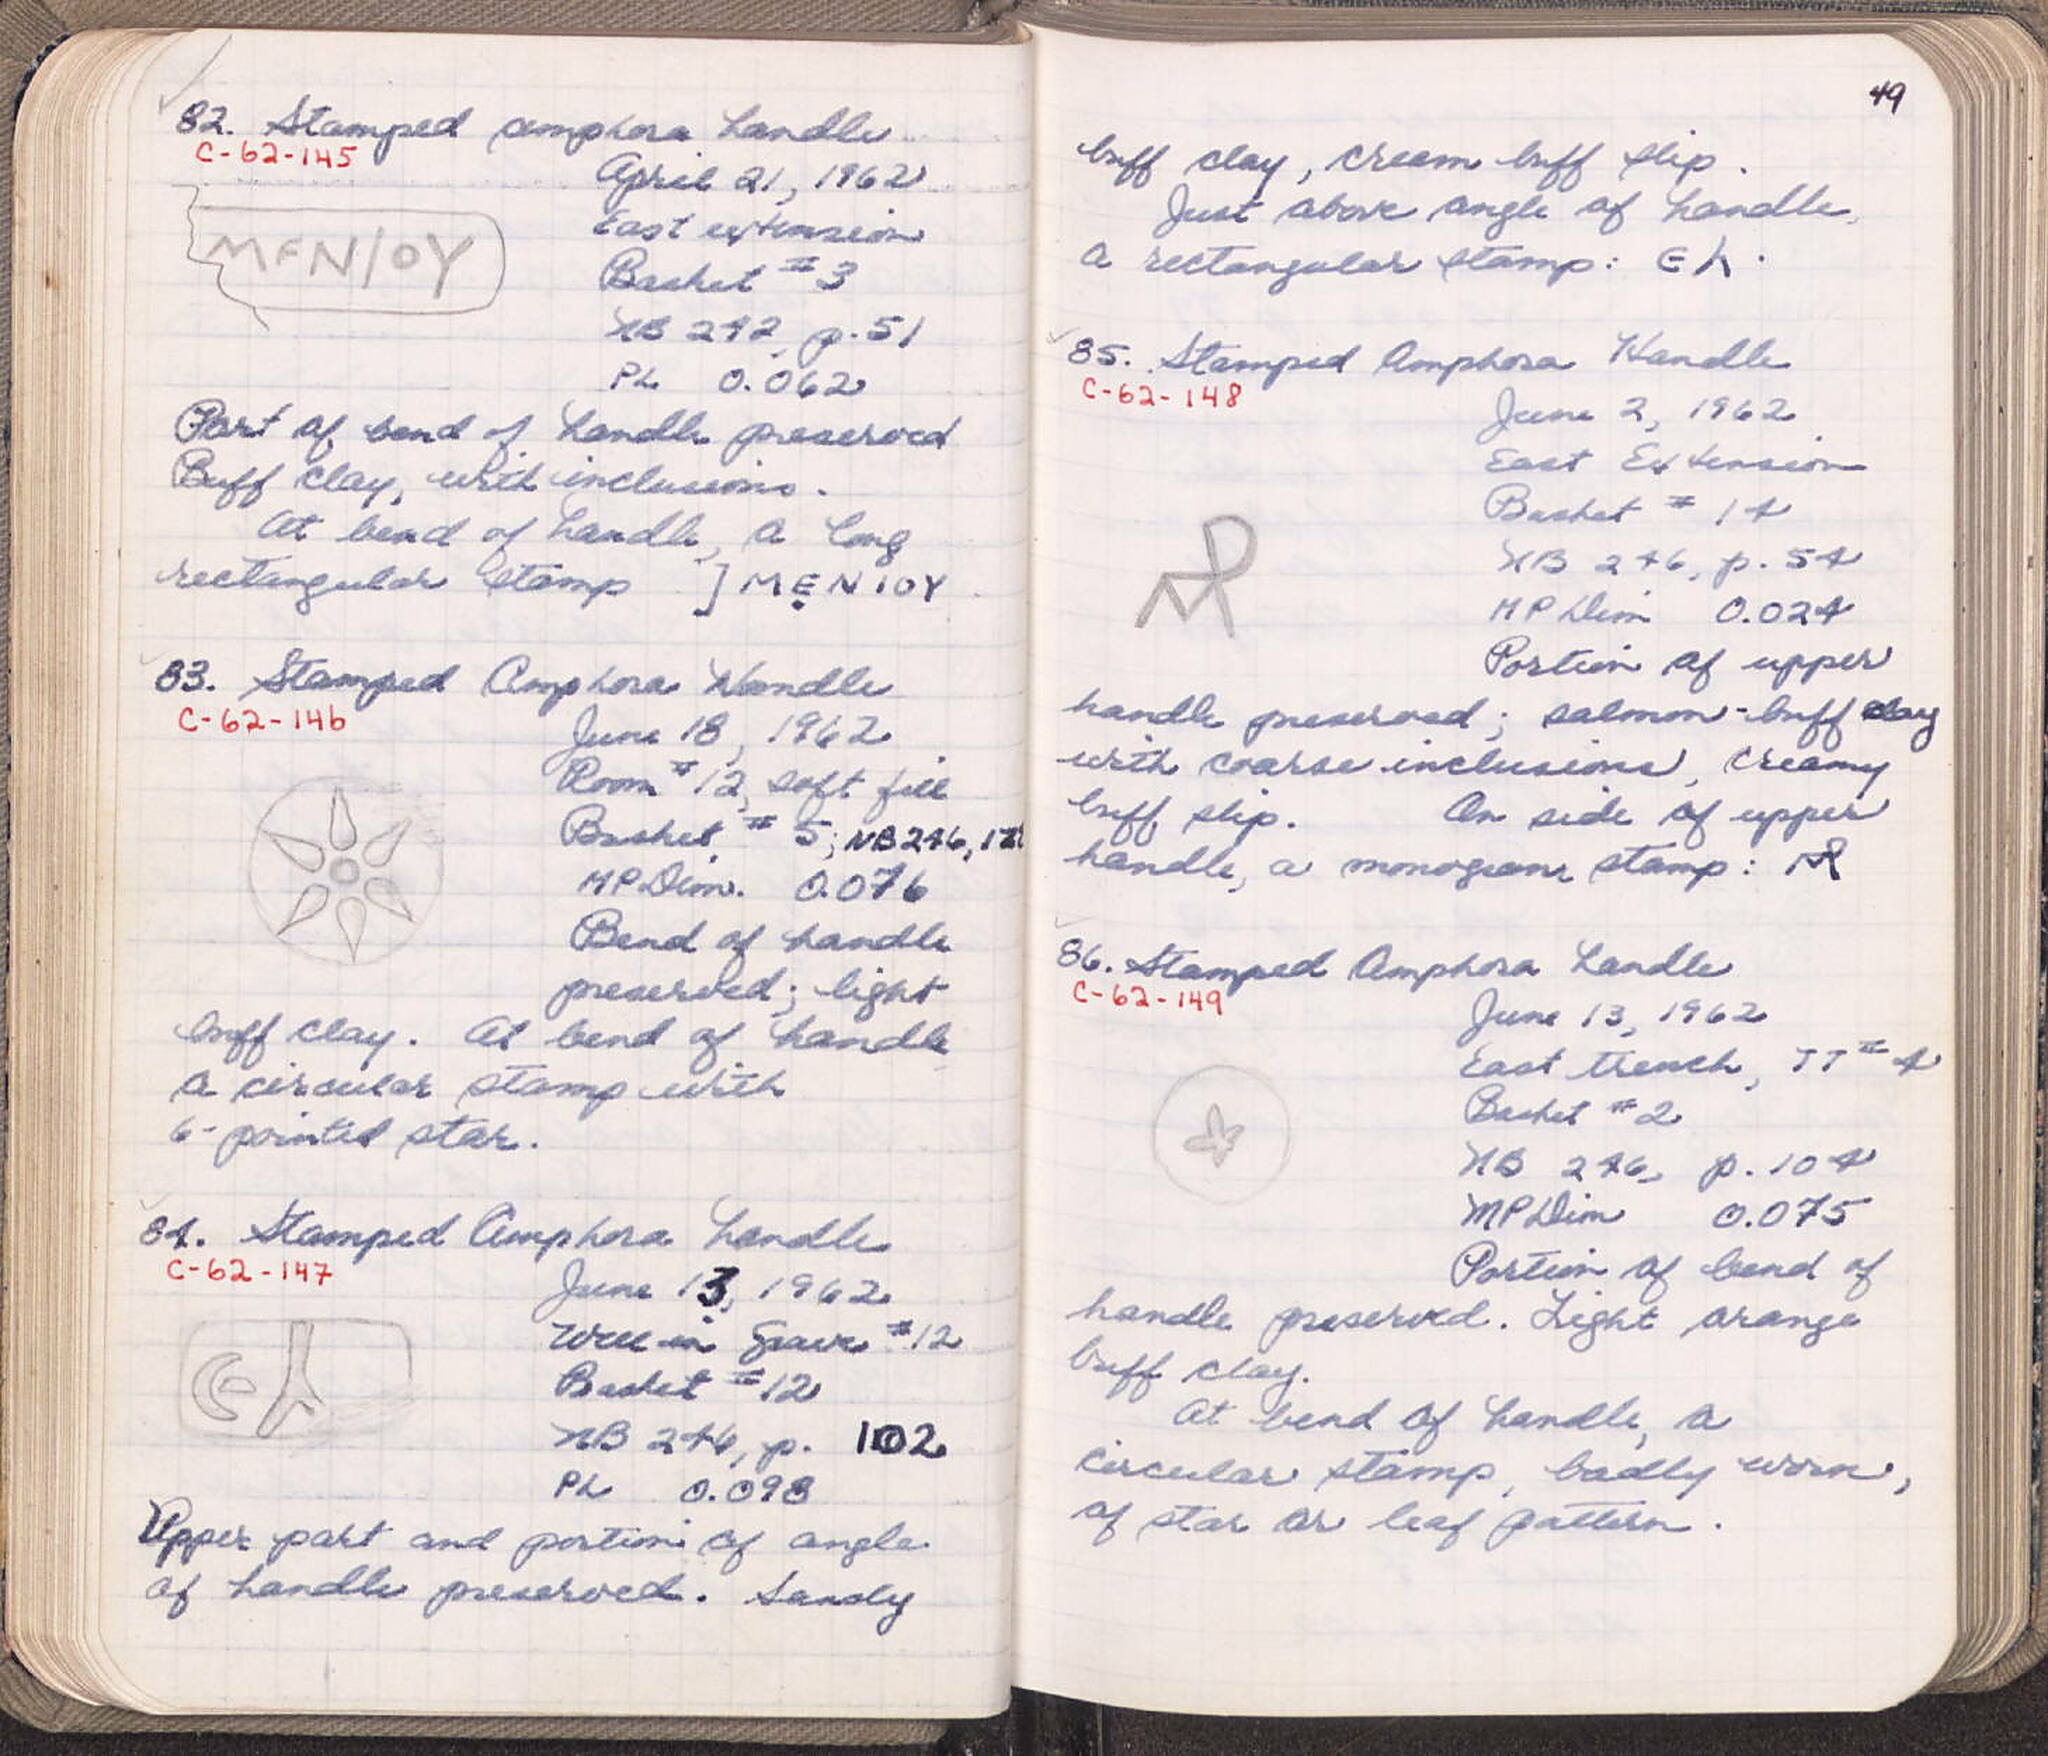 82. Stamped amphora handle
C-62-145
April 21, 1962
MENIOY
East extension
Basket #3
NB 242, p. 51
PL 0.062
Part of bend of handle preserved
Buff clay, with inclusions.
At bend of handle, a long
rectangular stamp ]MẸNIOY
83. Stamped Amphora Handle
C-62-146
June 18, 1962
Room #12, soft fill
Basket #5; NB 246,
MPDim. 0.076
Bend of handle
preserved; light
buff clay. At bend of handle
a circular stamp with
6-pointed star.
84. Stamped Amphora handle
C-62-147
June 13, 1962
Well in Grave #12
Basket #12
NB 246, p. 102
PL 0.098
Upper part and portion of angle
of handle preserved. Sandy
49
buff clay, cream buff slip.
Just above angle of handle,
a rectangular stamp: ϵλ.
85. Stamped Amphora Handle
C-62-148
June 2, 1962
East Extension
Basket #14
NB 246, p. 54
MPDim 0.024
Portion of upper
handle preserved; salmon-buff clay
with coarse inclusions, creamy
buff slip. On side of upper
handle, a monogram stamp:
86. Stamped Amphora handle
C-62-149
June 13, 1962
East trench, TT #4
Basket #2
NB 246, p. 104
MPDim 0.075
Portion of bend of
handle preserved. Light orange
buff clay.
At bend of handle, a
circular stamp, badly worn,
of star or leaf pattern.